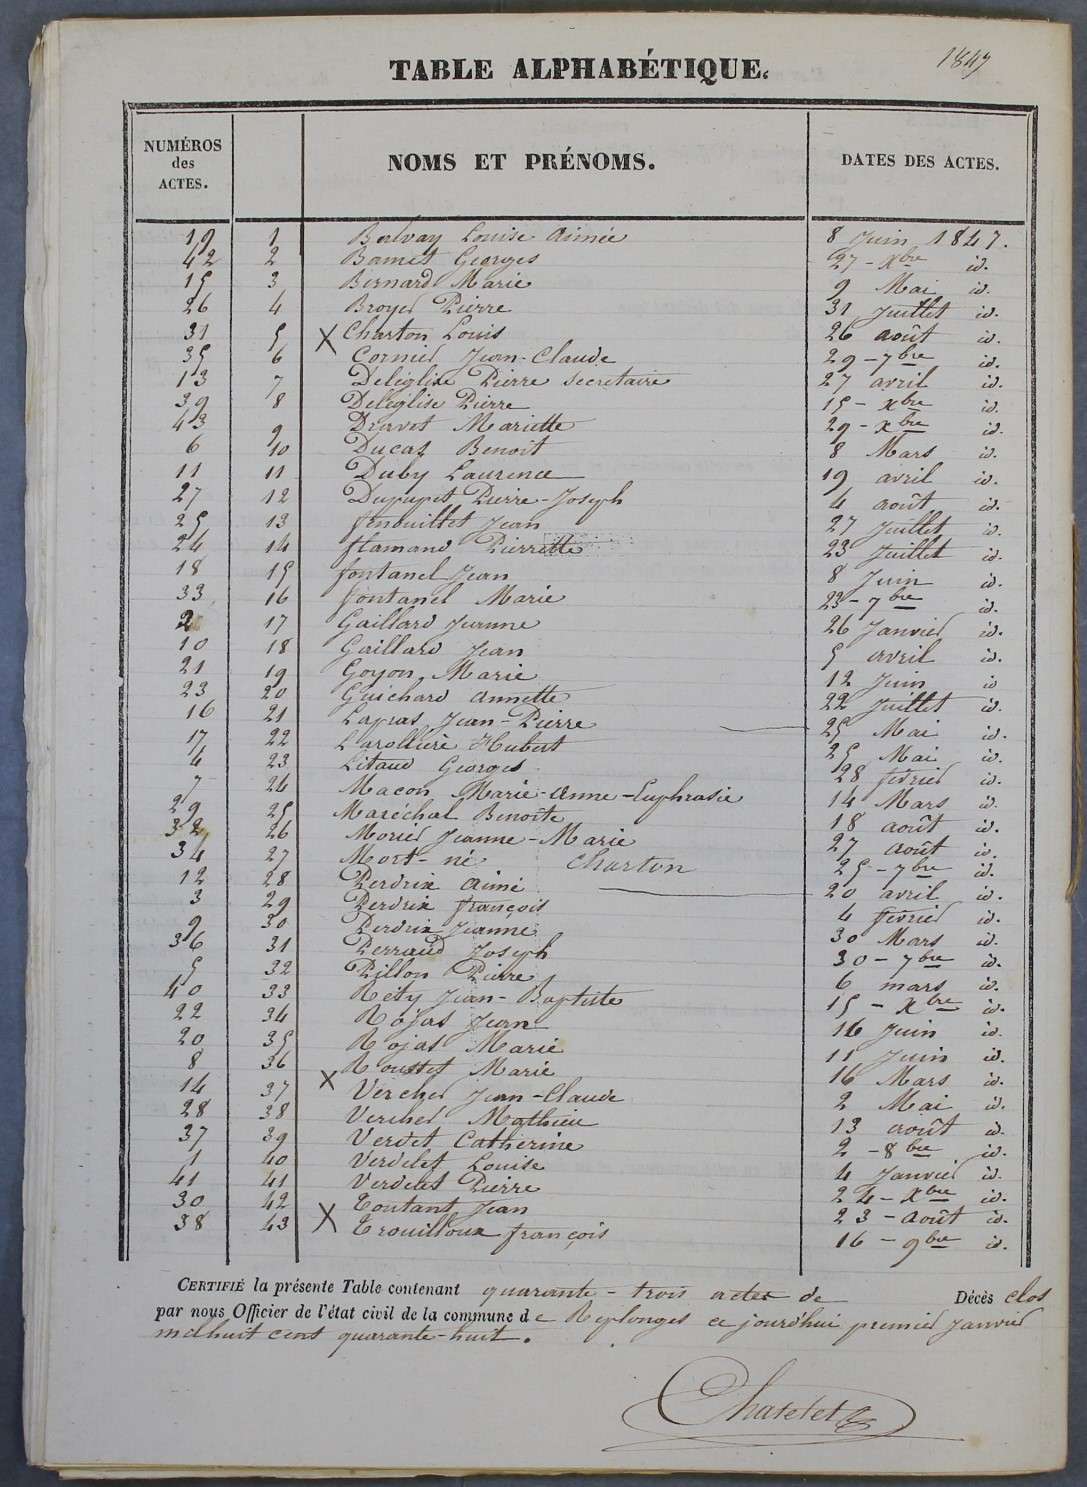 1847
TABLE ALPHABÉTIQUE.
NUMÉROS des ACTES. NOMS ET PRÉNOMS. DATES DES ACTES.
19 1 Louise Aimée 8 Juin 1847.
42 2 Bamet Georges 27 - Xbre id.
15 3 Bernard Marie 9 Mai id.
26 4 Broyer Pierre 31 Juillet id.
31 5 X Charton Louis 26 août id.
35 6 Cornier Jean-Claude 29 - 7bre id.
13 7 Deléglise Pierre secretaire 27 avril id.
39 8 Deléglise Pierre 15 - Xbre id.
43 9 Mariette 29 - Xbre id.
6 10 Ducas Benoit 8 Mars id.
11 11 Duby Laurence 19 avril id.
27 12 Dupupet Pierre-Joseph 4 août id.
25 13 fenouillet Jean 27 Juillet id.
24 14 flamand Pierrette 23 Juillet id.
18 15 fontanel Jean 8 Juin id.
33 16 fontanel Marie 23 - 7bre id.
2 17 Gaillard Jeanne 26 Janvier id.
10 18 Gaillard Jean 5 avril id.
21 19 Goyon Marie 12 Juin id
23 20 Guichard annette 22 Juillet id.
16 21 Lapras Jean-Pierre 25 Mai id.
17 22 Larollière Hubert 25 Mai id.
4 23 Litaud Georges 28 février id.
7 24 Macon Marie-Anne-Euphrasie 14 Mars id.
29 25 Maréchal Benoîte 18 août id.
32 26 Morier Jeanne-Marie 27 août id.
34 27 Mort-né Charton 25 - 7bre id.
12 28 Perdrix Aimé 20 avril id.
3 29 Perdrix françois 4 février id.
9 30 Perdrix Jeanne 30 Mars id.
36 31 Perraud Joseph 30 - 7bre id.
5 32 Pillon Pierre 6 mars id.
40 33 Réty Jean-Baptiste 15 - Xbre id.
22 34 Rojas Jean 16 Juin id.
20 35 Rojas Marie 11 Juin id.
8 36 Roustet Marie 16 Mars id.
14 37 X Vercher Jean-Claude 2 Mai id.
28 38 Vercher Mathieu 13 août id.
37 39 Verdet Catherine 2 - 8bre id.
1 40 Verdelet Louise 4 Janvier id.
41 41 Verdelet Pierre 24 - Xbre id.
30 42 Toutant Jean 23 - août id.
38 43 X Trouilloux françois 16 - 9bre id.
CERTIFIÉ la présente Table contenant quarante-trois actes de Décès clos
par nous Officier de l'état civil de la commune de Replonges ce jourd'hui premier Janvier
mil huit cent quarante-huit.
Chatelet